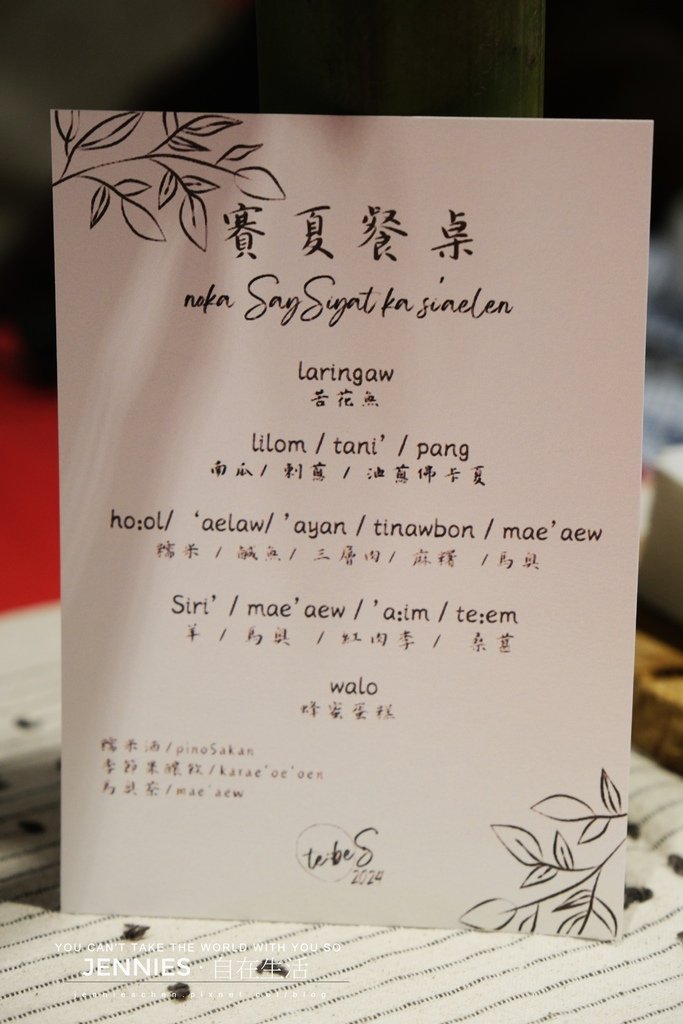 賽夏餐桌
noka SaySiyat ka si'aelen
laringaw
苦花魚
lilom / tani' / pang
南瓜 / 刺蔥 / 油蔥佛卡夏
ho:ol/ 'aelaw/ 'ayan / tinawbon / mae'aew
糯米 / 鹹魚 / 三層肉 / 麻糬 / 馬奧
Siri' / mae'aew / 'a:im / te:em
羊 / 馬奧 / 紅肉李 / 桑葚
walo
蜂蜜蛋糕
糯米酒/pinoSakan
季節果釀飲/karae'oe'oen
馬奧茶/mae'aew
te:beS
2024
YOU CAN'T TAKE THE WORLD WITH YOU SO
JENNIES · 自在生活
jennieschen.pixnet.net/blog